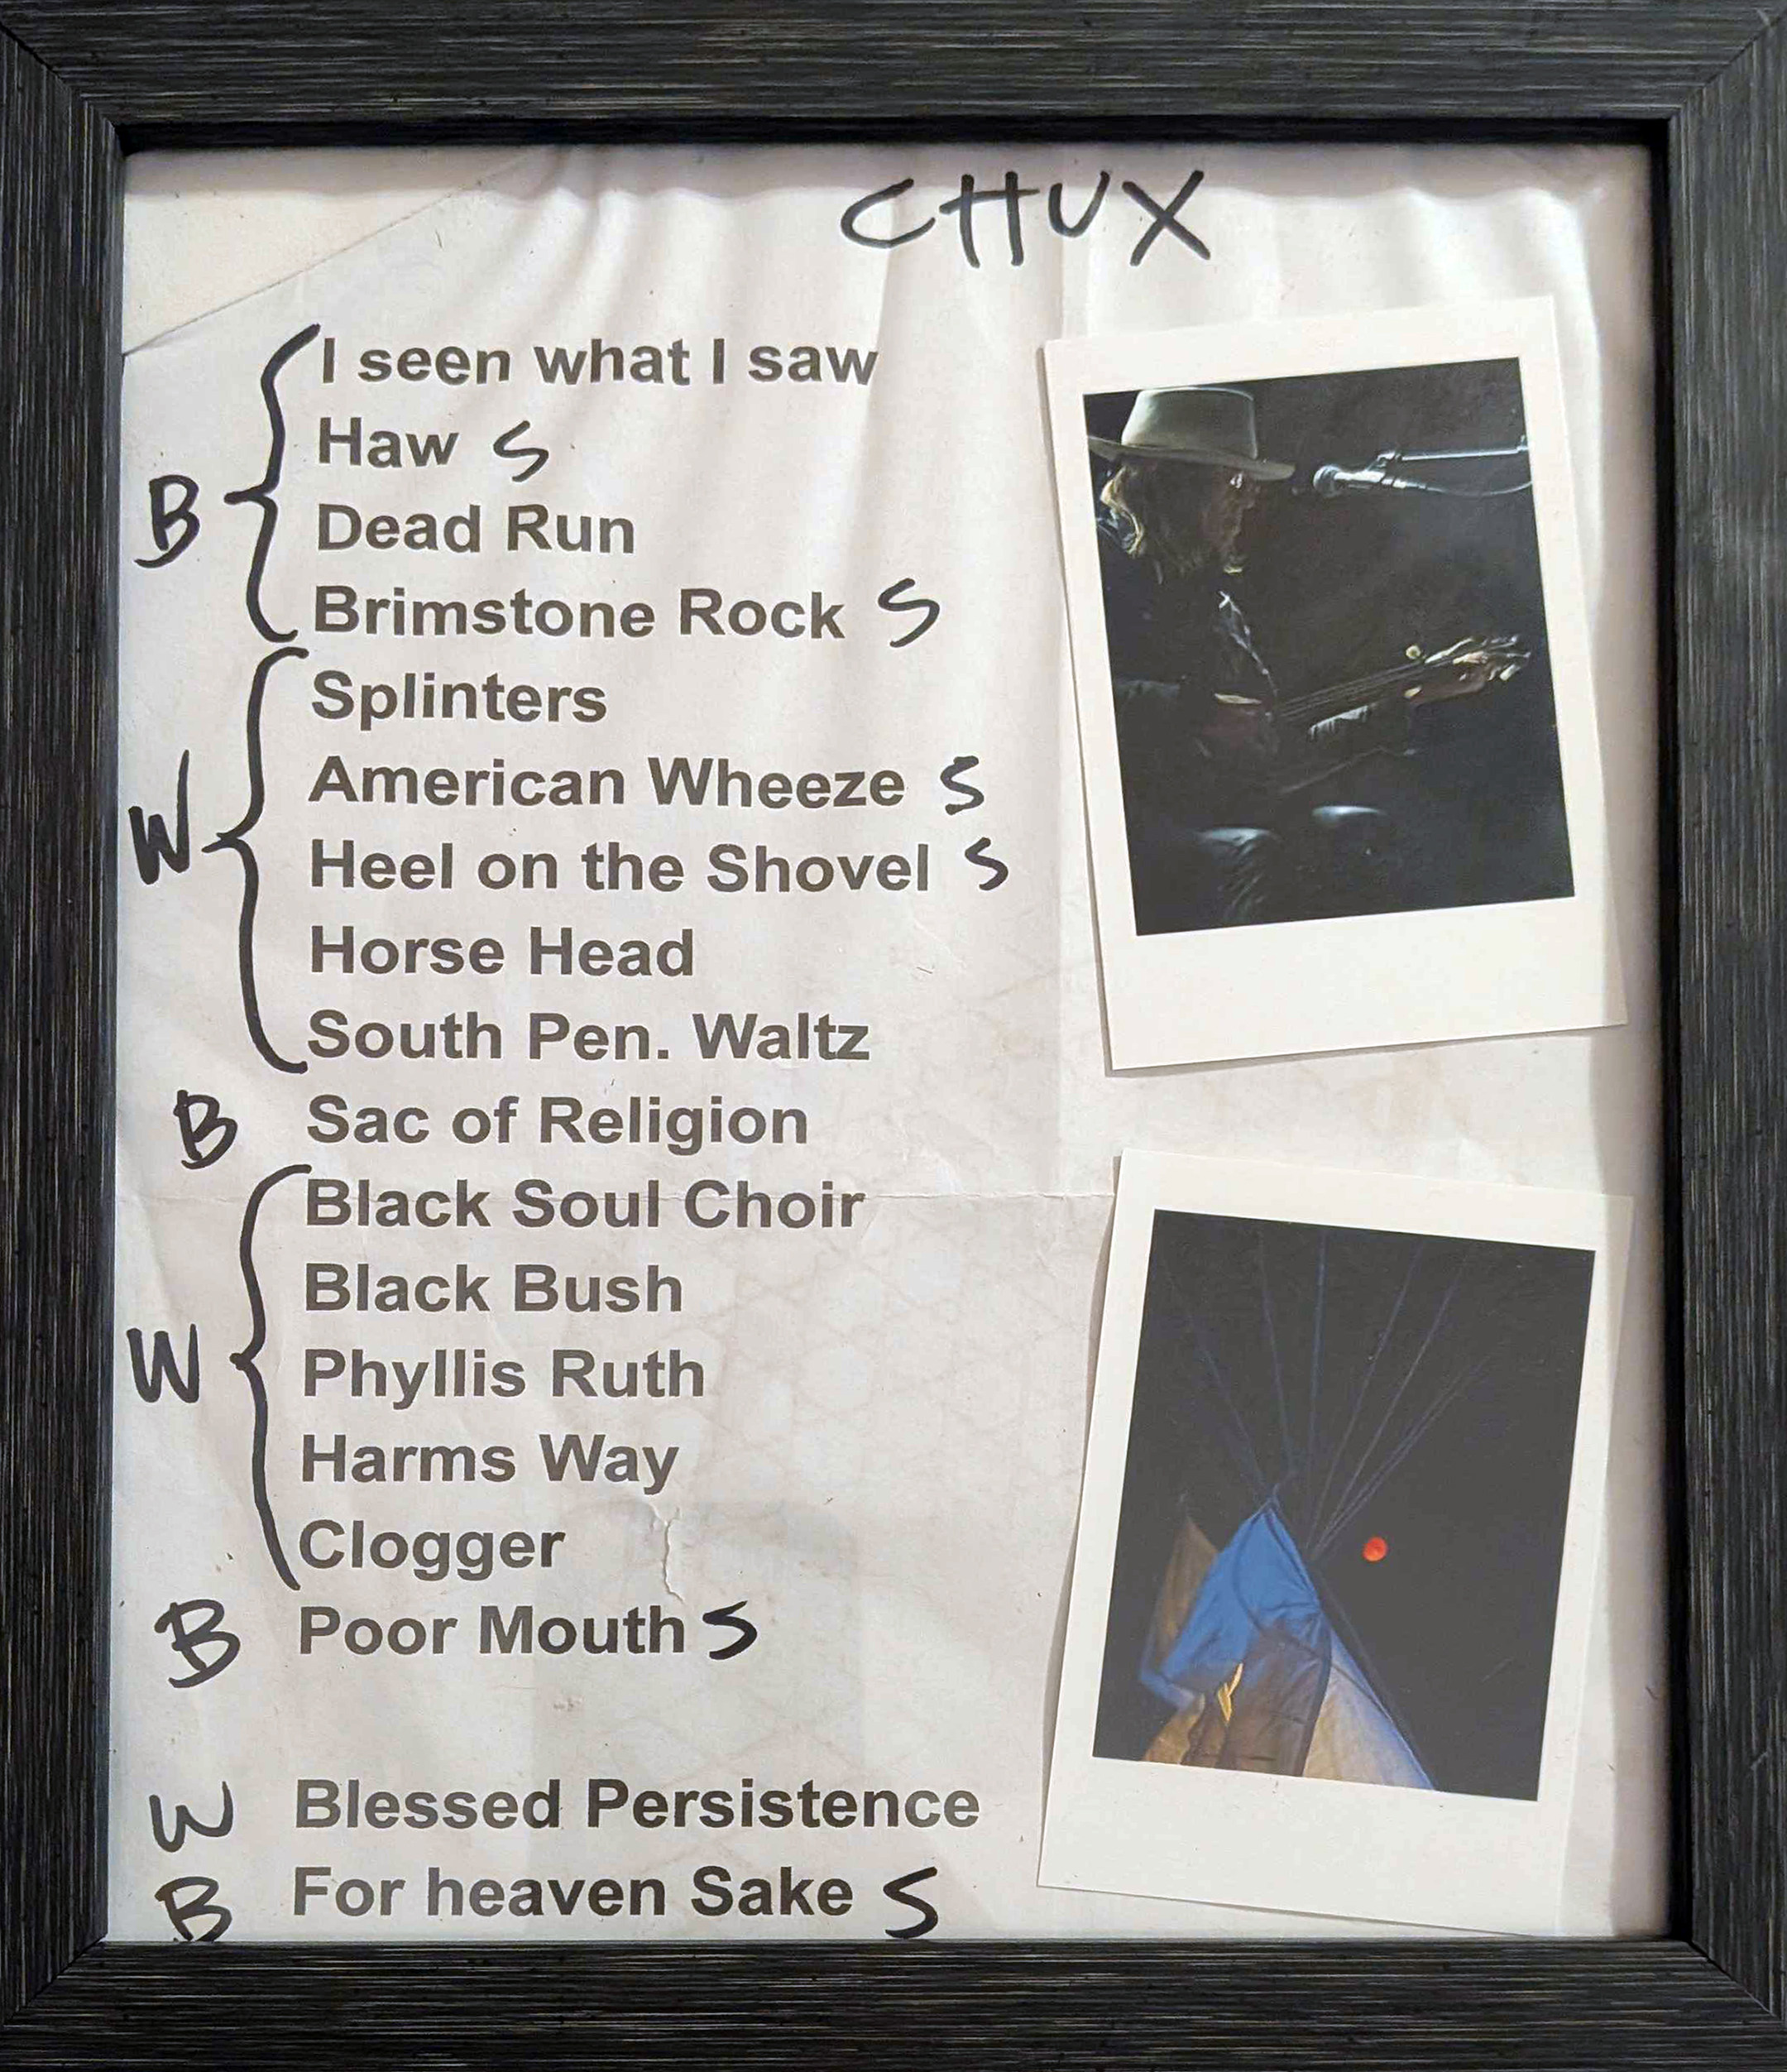 CHUX
I seen what I saw
Haw S
B Dead Run
Brimstone Rock S
Splinters
American Wheeze S
W Heel on the Shovel S
Horse Head
South Pen. Waltz
B Sac of Religion
Black Soul Choir
Black Bush
W Phyllis Ruth
Harms Way
Clogger
B Poor Mouth S
W Blessed Persistence
B For heaven Sake S